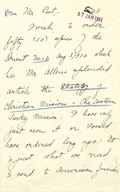 Dear Mr. Peet:-
27 JAN 1911
I wish to order
fifty (50) copies of the
Orient Aug 3, 1910 which
has Mr. Allen's splendid
article the Sketches of
Christian Missions in The Eastern
Turkey Mission. I have only
just seen it or would
have ordered long ago. It is
just what we need
to send to American friends